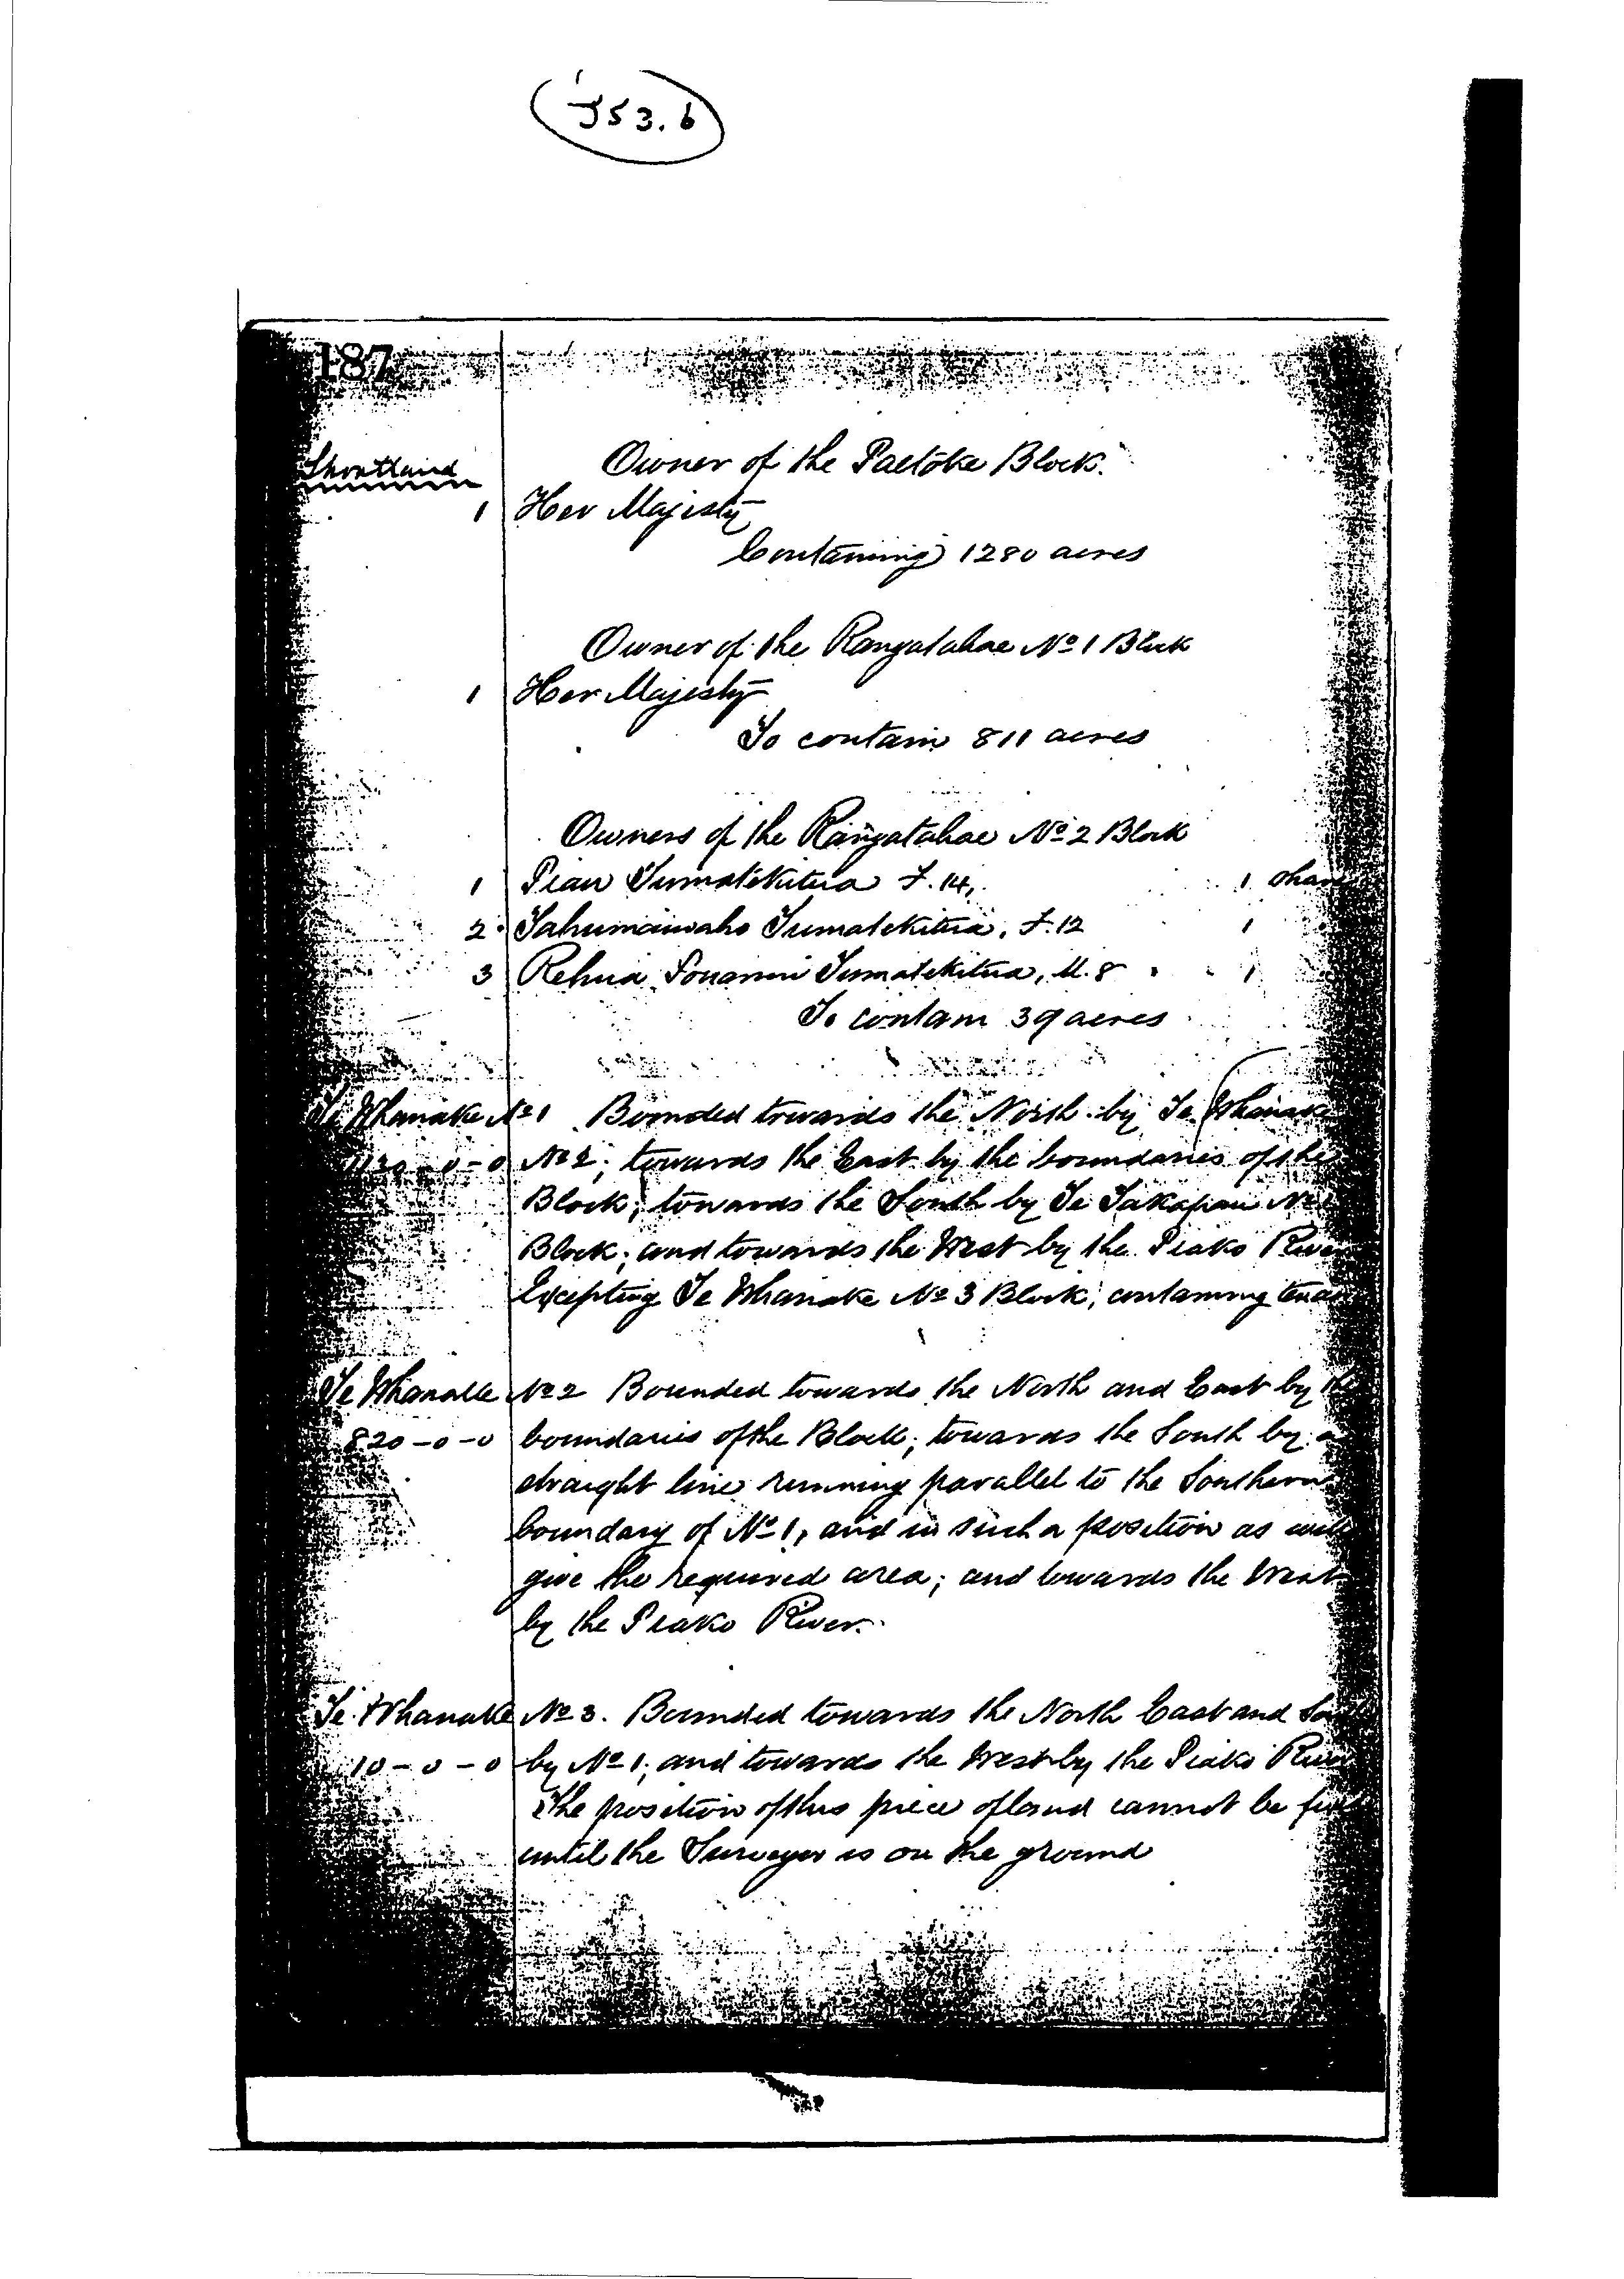 J53.6
187
Shortland
Owner of the Paetoke Block.
1 Her Majesty
Containing 1280 acres
Owner of the Rangatahae No 1 Block
1 Her Majesty
To contain 811 acres
Owners of the Rangatahae No 2 Block
1 Piau Tumatekitua F. 14, 1 share
2 Tahumaiwaho Tumatekitua, F. 12 1
3 Rehua Tumatekitua, M. 8 1
To contain 39 acres
Te Whanake No 1 Bounded towards the North by Te Whanake
1130-0-0 No 2; towards the East by the boundaries of the
Block; towards the South by Te Takapau No
Block; and towards the West by the Piako River
Excepting Te Whanake No 3 Block; containing
Te Whanake No 2 Bounded towards the North and East by the
820-0-0 boundaries of the Block; towards the South by a
straight line running parallel to the Southern
boundary of No 1, and in such a position as will
give the required area; and towards the West
by the Piako River.
Te Whanake No 3. Bounded towards the North East and South
10-0-0 by No 1; and towards the West by the Piako River
The position of this piece of land cannot be
until the Surveyor is on the ground